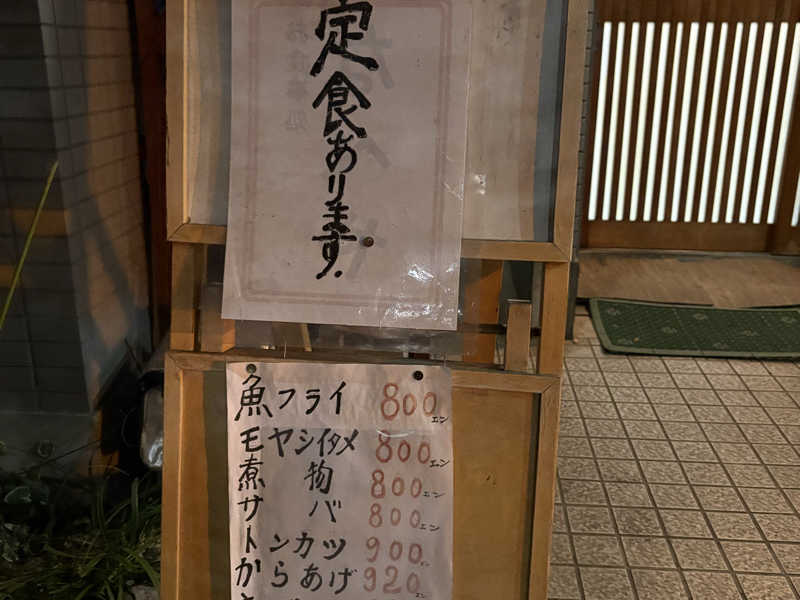 定食あります。
魚フライ 800エン
モヤシイタメ 800エン
煮物 800エン
サバ 800エン
トンカツ 900エン
からあげ 920エン